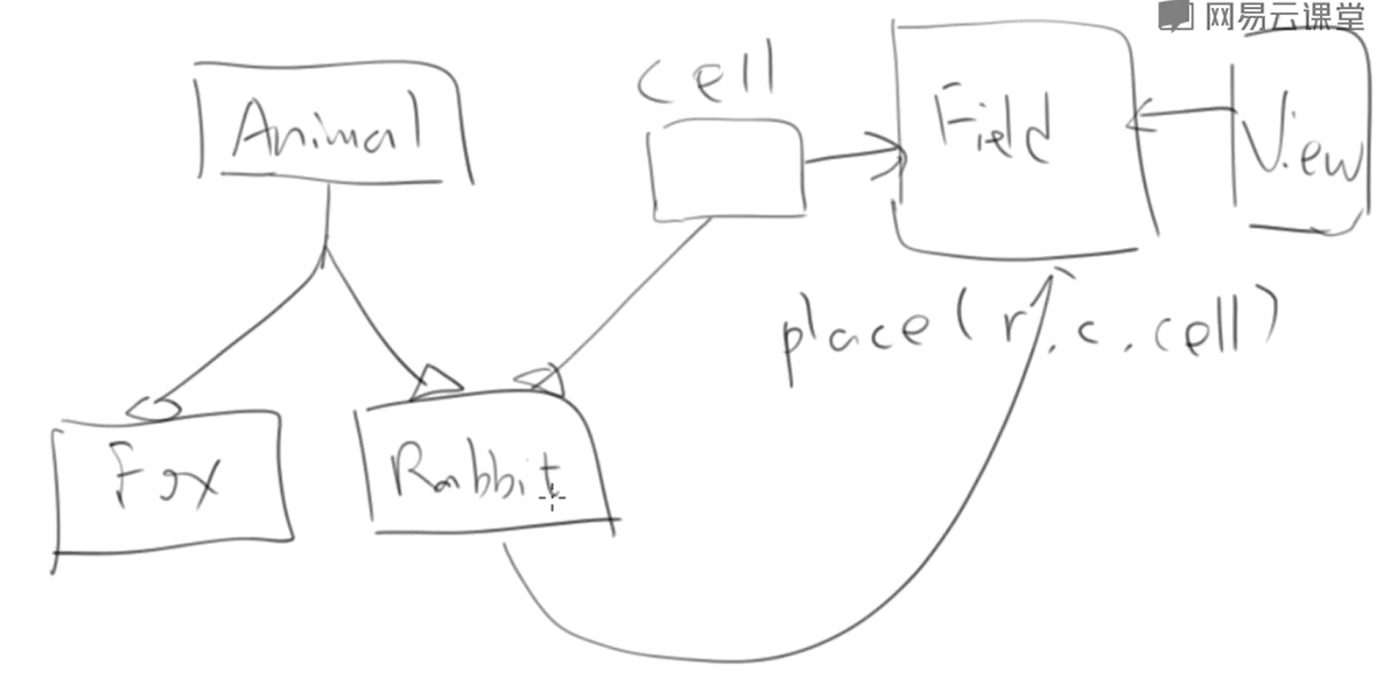 网易云课堂
Animal
cell
Field
View
place(r,c,cell)
Fox
Rabbit